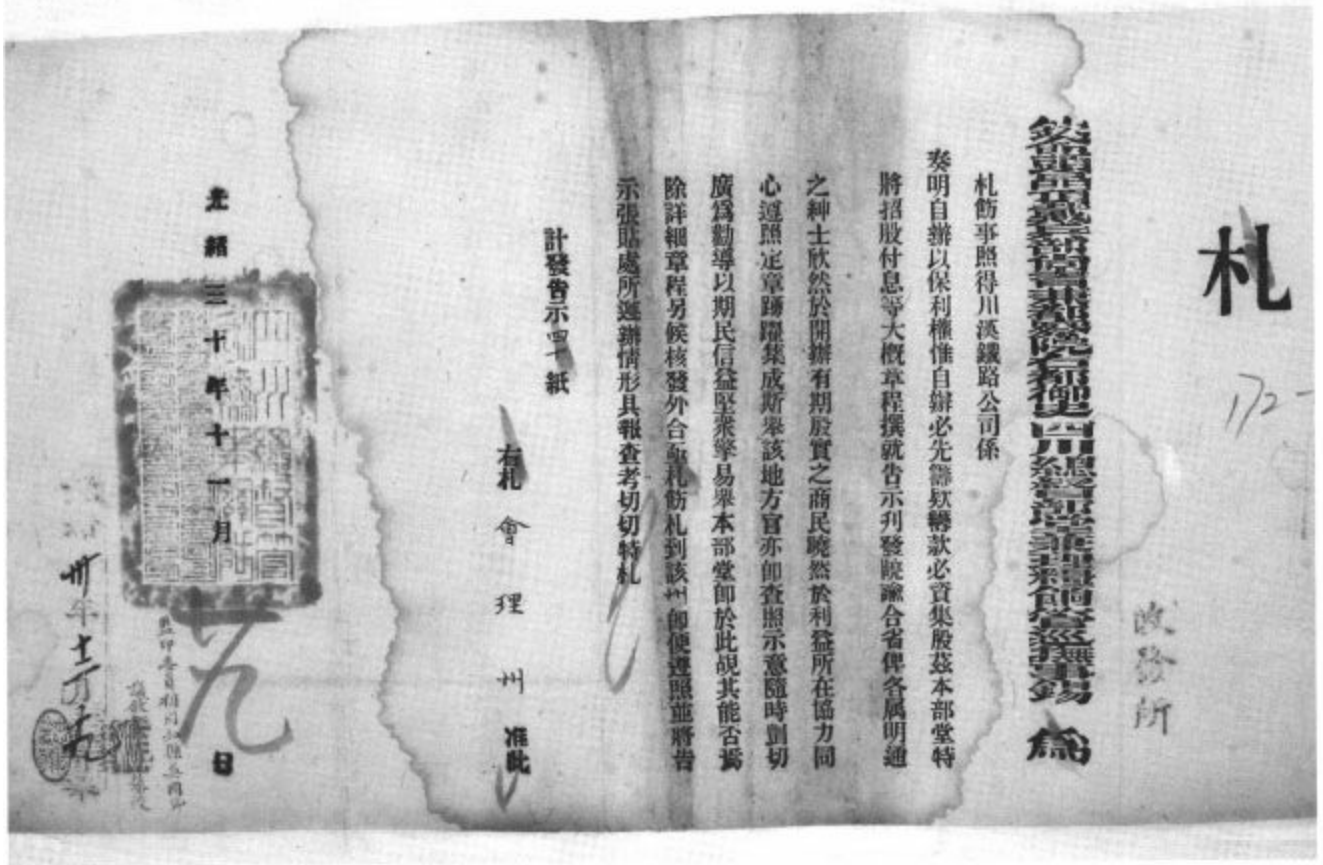 札
172-
欽命頭品頂戴兵部尚書兼都察院右都御史四川總督部堂兼理糧餉管巡撫事錫 為
札飭事照得川漢鐵路公司係
奏明自辦以保利權惟自辦必先籌款籌款必資集股茲本部堂特
將招股付息等大概章程撰就告示刋發曉諭合省俾各属明通
之紳士欣然於開辦有期殷實之商民曉然於利益所在協力同
心遵照定章踴躍集成斯舉該地方官亦卽查照示意隨時剴切
廣爲勸導以期民信益堅衆擎易舉本部堂卽於此覘其能否焉
除詳細章程另候核發外合亟札飭札到該 卽便遵照並將告
示張貼處所遵辦情形具報查考切切特札
計發告示四十紙
右札會理州准此
光緒三十年十一月 十九 日
卅年十二月